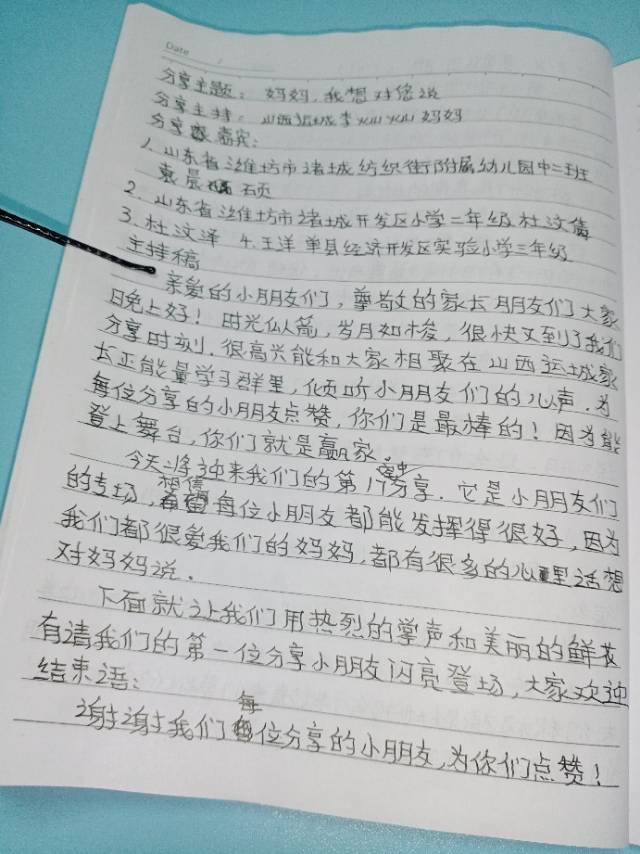 Date
分享主题：妈妈，我想对您说
分享主持：山西运城李yuu yuu妈妈
分享嘉宾：
1.山东省潍坊市诸城纺织街附属幼儿园中二班
袁晨硕
2.山东省潍坊市诸城开发区小学二年级杜汶倩
3.杜汶泽 4.王洋 单县经济开发区实验小学三年级
主持稿
亲爱的小朋友们，尊敬的家长朋友们大家
晚上好！时光似箭，岁月如梭，很快又到了我们
分享时刻．很高兴能和大家相聚在山西运城家
长正能量学习群里，倾听小朋友们的心声．为
每位分享的小朋友点赞，你们是最棒的！因为能
登上舞台，你们就是赢家．
今天将迎来我们的第17分享．它是小朋友们
的专场，相信每位小朋友都能发挥得很好，因为
我们都很爱我们的妈妈，都有很多的心里话想
对妈妈说．
下面就让我们用热烈的掌声和美丽的鲜花
有请我们的第一位分享小朋友闪亮登场，大家欢迎
结束语：
谢谢我们每位分享的小朋友，为你们点赞！